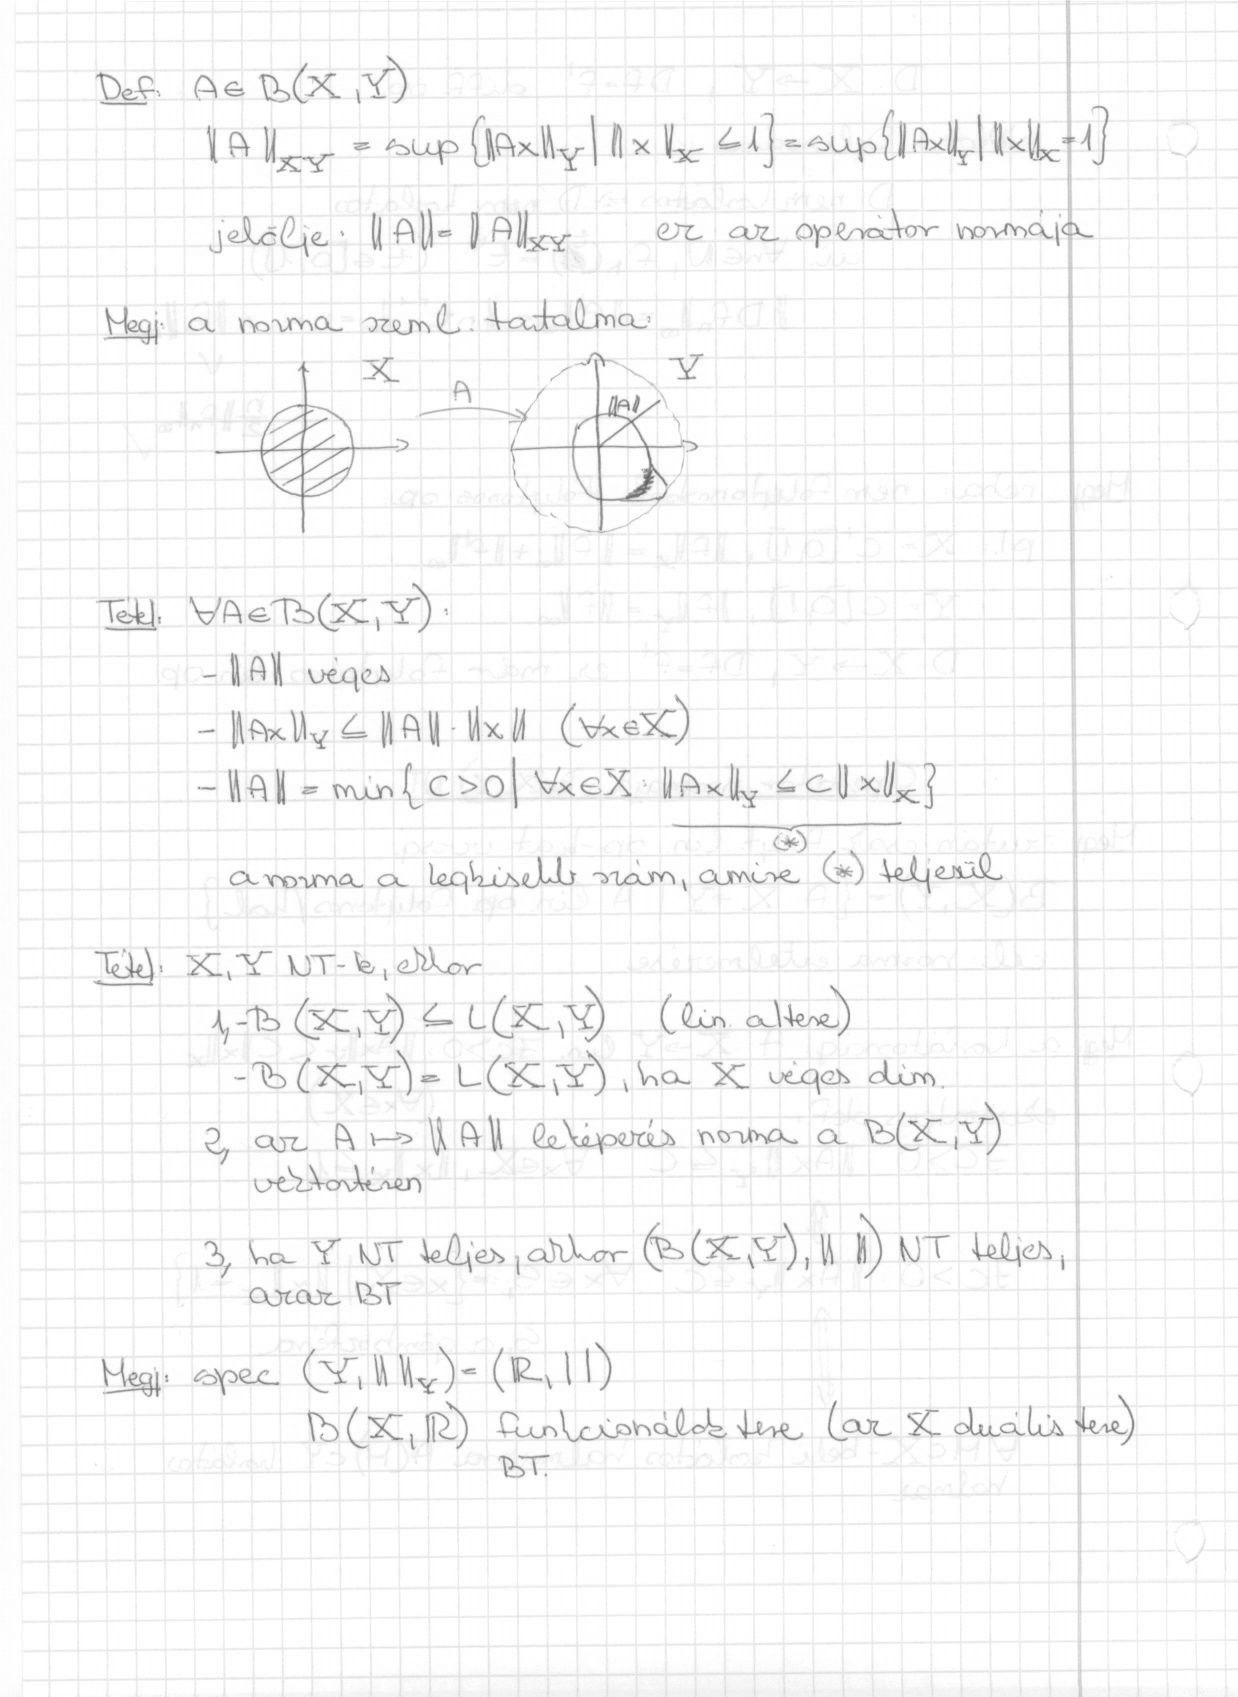 Def. A∈B(X,Y)
‖A‖_XY = sup{‖Ax‖_Y | ‖x‖_X ≤ 1} = sup{‖Ax‖_Y | ‖x‖_X = 1}
jelölje: ‖A‖ = ‖A‖_XY ez az operátor normája
Megj: a norma szeml. tartalma:
X A Y
‖A‖
Tétel: ∀A∈B(X,Y):
- ‖A‖ véges
- ‖Ax‖_Y ≤ ‖A‖·‖x‖ (∀x∈X)
- ‖A‖ = min{C>0 | ∀x∈X: ‖Ax‖_Y ≤ C‖x‖_X}
(*)
a norma a legkisebb szám, amire (*) teljesül
Tétel: X,Y NT-k, ekkor
1, - B(X,Y) ≤ L(X,Y) (lin. altere)
- B(X,Y) = L(X,Y), ha X véges dim.
2, az A ↦ ‖A‖ leképezés norma a B(X,Y)
vektortéren
3, ha Y NT teljes, akkor (B(X,Y), ‖ ‖) NT teljes,
azaz BT
Megj: spec (Y, ‖ ‖_Y) = (R, | |)
B(X,R) funkcionálok tere (az X duális tere)
BT.